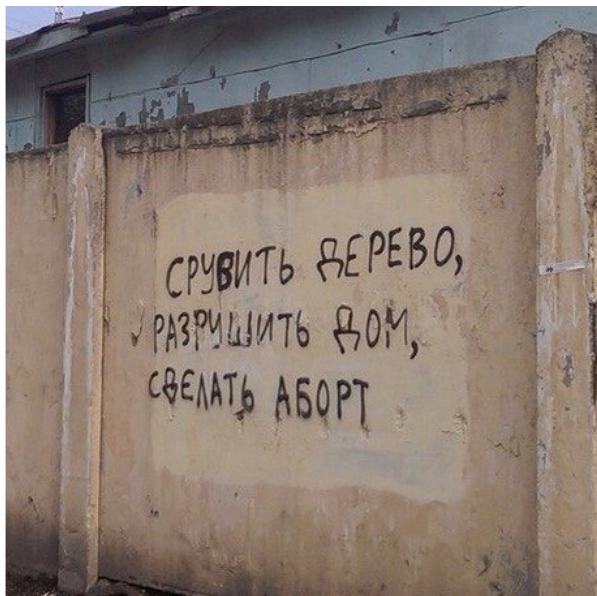 СРУБИТЬ ДЕРЕВО,
РАЗРУШИТЬ ДОМ,
СДЕЛАТЬ АБОРТ